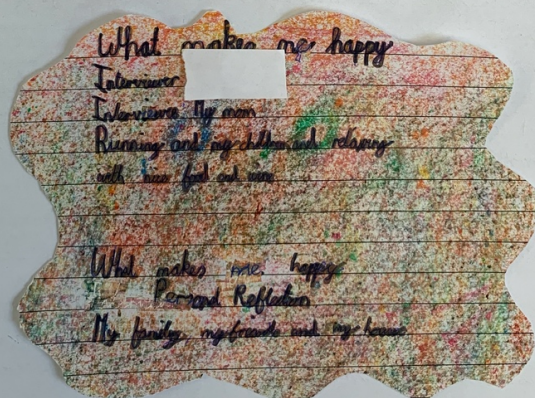 What makes me happy
Interviewer
Interviewee My mom
Running and my children and relaxing
with nice food and wine
What makes me happy
Personal Reflection
My family, my friends and my house